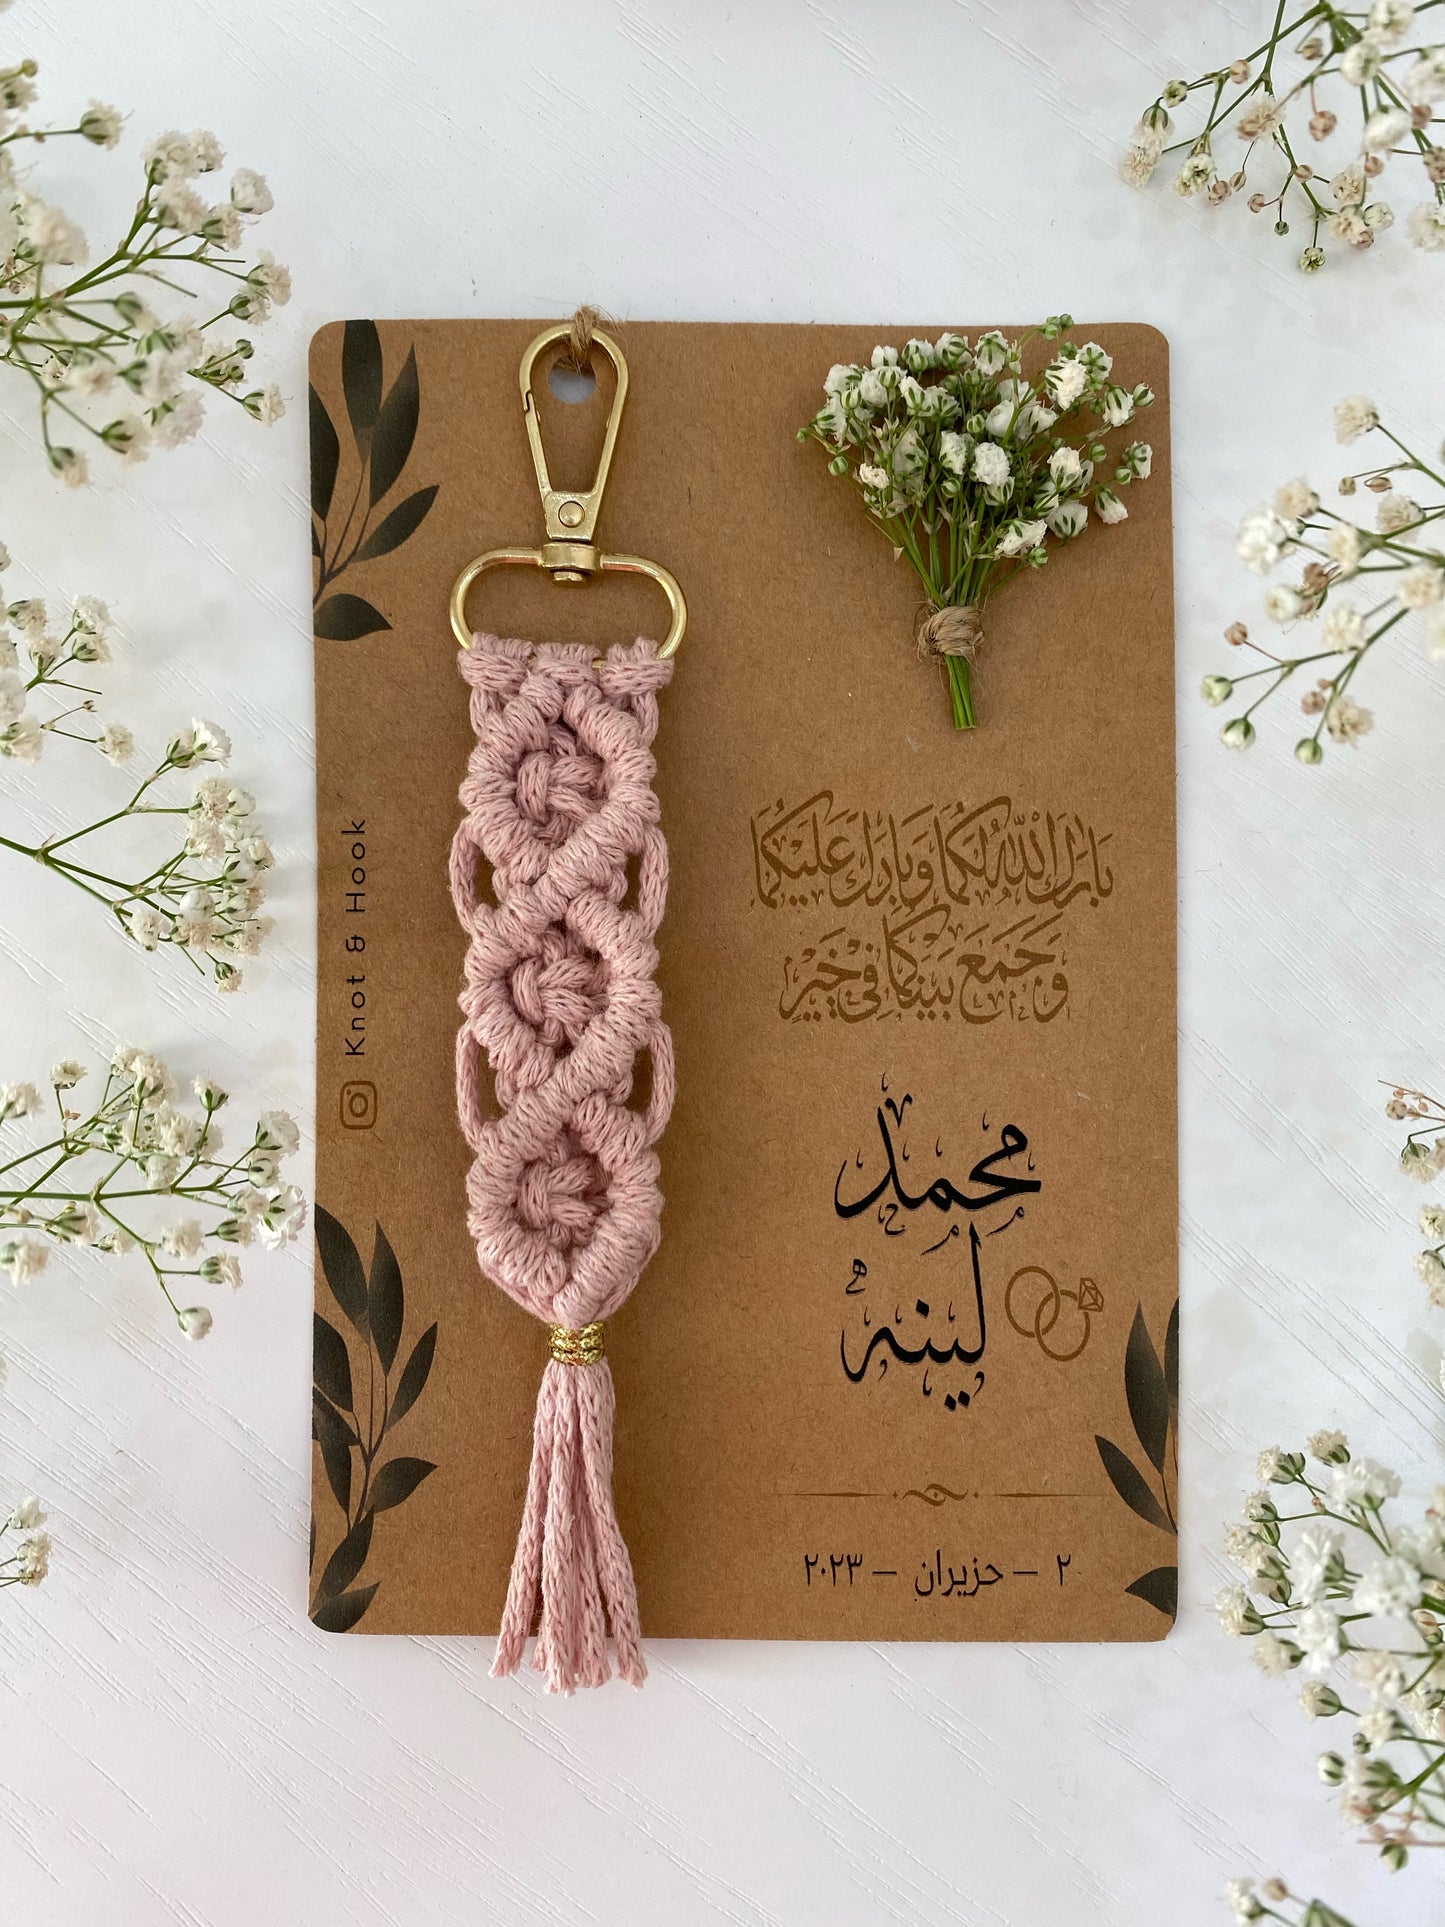 Knot & Hook
بَارَكَ اللّٰهُ لَكُمَا وَبَارَكَ عَلَيْكُمَا
وَجَمَعَ بَيْنَكُمَا فِي خَيْرٍ
محمد
لينه
٢ – حزيران – ٢٠٢٣